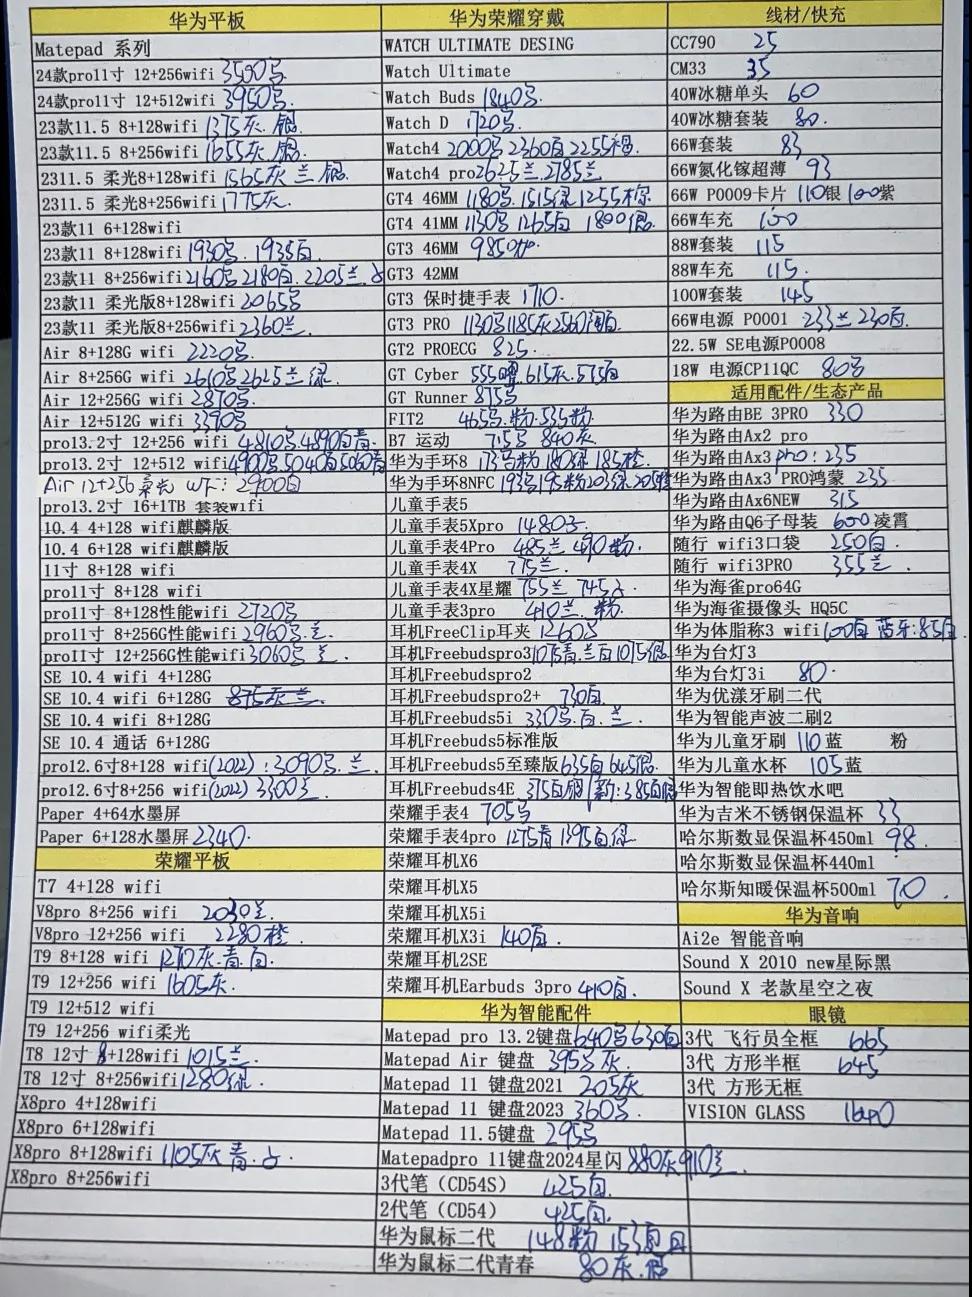 华为平板
Matepad 系列
24款pro11寸 12+256wifi 3590
24款pro11寸 12+512wifi 3950
23款11.5 8+128wifi 1375灰.银
23款11.5 8+256wifi 1655灰.银
2311.5 柔光8+128wifi 1565灰 兰.银
2311.5 柔光8+256wifi 1775灰.
23款11 6+128wifi
23款11 8+128wifi 1930 . 1935白
23款11 8+256wifi 2160 2180白. 2205兰.
23款11 柔光版8+128wifi 2065
23款11 柔光版8+256wifi 2360兰.
Air 8+128G wifi 2220
Air 8+256G wifi 2610 2625兰.绿.
Air 12+256G wifi 2870
Air 12+512G wifi 3390
pro13.2寸 12+256 wifi 4810 4890白青.
pro13.2寸 12+512 wifi 4900 5040白5060青
Air 12+256 柔光 WF: 2900白
pro13.2寸 16+1TB 套装wifi
10.4 4+128 wifi麒麟版
10.4 6+128 wifi麒麟版
11寸 8+128 wifi
pro11寸 8+128 wifi
pro11寸 8+128性能wifi 2720
pro11寸 8+256G性能wifi 2960 .兰.
proII寸 12+256G性能wifi 3060 兰.
SE 10.4 wifi 4+128G
SE 10.4 wifi 6+128G 875灰兰
SE 10.4 wifi 8+128G
SE 10.4 通话 6+128G
pro12.6寸8+128 wifi(2022): 3090 .兰.
pro12.6寸8+256 wifi(2022) 3300兰.
Paper 4+64水墨屏
Paper 6+128水墨屏 2340.
荣耀平板
T7 4+128 wifi
V8pro 8+256 wifi 2030兰.
V8pro 12+256 wifi 2280橙.
T9 8+128 wifi 1270灰.青.白.
T9 12+256 wifi 1605灰.
T9 12+512 wifi
T9 12+256 wifi柔光
T8 12寸 8+128wifi 1015兰.
T8 12寸 8+256wifi 1280绿.
X8pro 4+128wifi
X8pro 6+128wifi
X8pro 8+128wifi 1105灰 青.
X8pro 8+256wifi
华为荣耀穿戴
WATCH ULTIMATE DESING
Watch Ultimate
Watch Buds 1840
Watch D 1720
Watch4 2000 2360白 2255棕.
Watch4 pro 2625兰.2785兰
GT4 46MM 1180 .1515绿 1255棕
GT4 41MM 1130 1265白 1800银.
GT3 46MM 985
GT3 42MM
GT3 保时捷手表 1710.
GT3 PRO 1130 1185灰2560 白.
GT2 PROECG 825.
GT Cyber 555曜.615灰.575白
GT Runner 875
FIT2 465 .粉.535粉
B7 运动 755 840灰
华为手环8 173 粉 180绿 185橙.
华为手环8NFC 193 195粉203绿.205橙
儿童手表5
儿童手表5Xpro 1480
儿童手表4Pro 485兰 490粉.
儿童手表4X 775兰.
儿童手表4X星耀 755兰 745
儿童手表3pro 410兰.粉.
耳机FreeClip耳夹 1260
耳机Freebudspro3 1075青.兰白1075银.
耳机Freebudspro2
耳机Freebudspro2+ 730白
耳机Freebuds5i 330 .白.兰.
耳机Freebuds5标准版
耳机Freebuds5至臻版 635白 645银.
耳机Freebuds4E 375白 /新:385白银
荣耀手表4 705
荣耀手表4pro 1275青 1395白绿
荣耀耳机X6
荣耀耳机X5
荣耀耳机X5i
荣耀耳机X3i 140白.
荣耀耳机2SE
荣耀耳机Earbuds 3pro 410白.
华为智能配件
Matepad pro 13.2键盘 640 630白
Matepad Air 键盘 395 灰
Matepad 11 键盘2021 205灰
Matepad 11 键盘2023 360
Matepad 11.5键盘 295
Matepadpro 11键盘2024星闪 880灰910兰.
3代笔（CD54S） 425白.
2代笔（CD54） 425白.
华为鼠标二代 148粉 153白
华为鼠标二代青春 80灰.银
线材/快充
CC790 25
CM33 35
40W冰糖单头 60
40W冰糖套装 80.
66W套装 83
66W氮化镓超薄 93
66W P0009卡片 110银 100紫
66W车充 100
88W套装 115
88W车充 115.
100W套装 145
66W电源 P0001 233兰 230白.
22.5W SE电源P0008
18W 电源CP11QC 80
适用配件/生态产品
华为路由BE 3PRO 330
华为路由Ax2 pro
华为路由Ax3 pro: 235
华为路由Ax3 PRO鸿蒙 235
华为路由Ax6NEW 315
华为路由Q6子母装 600凌霄
随行 wifi3口袋 250白
随行 wifi3PRO 355兰.
华为海雀pro64G
华为海雀摄像头 HQ5C
华为体脂称3 wifi 100白 蓝牙:85白
华为台灯3
华为台灯3i 80.
华为优漾牙刷二代
华为智能声波二刷2
华为儿童牙刷 110蓝 粉
华为儿童水杯 105蓝
华为智能即热饮水吧
华为吉米不锈钢保温杯 33
哈尔斯数显保温杯450ml 98.
哈尔斯数显保温杯440ml
哈尔斯知暖保温杯500ml 70.
华为音响
Ai2e 智能音响
Sound X 2010 new星际黑
Sound X 老款星空之夜
眼镜
3代 飞行员全框 665
3代 方形半框 645
3代 方形无框
VISION GLASS 1640